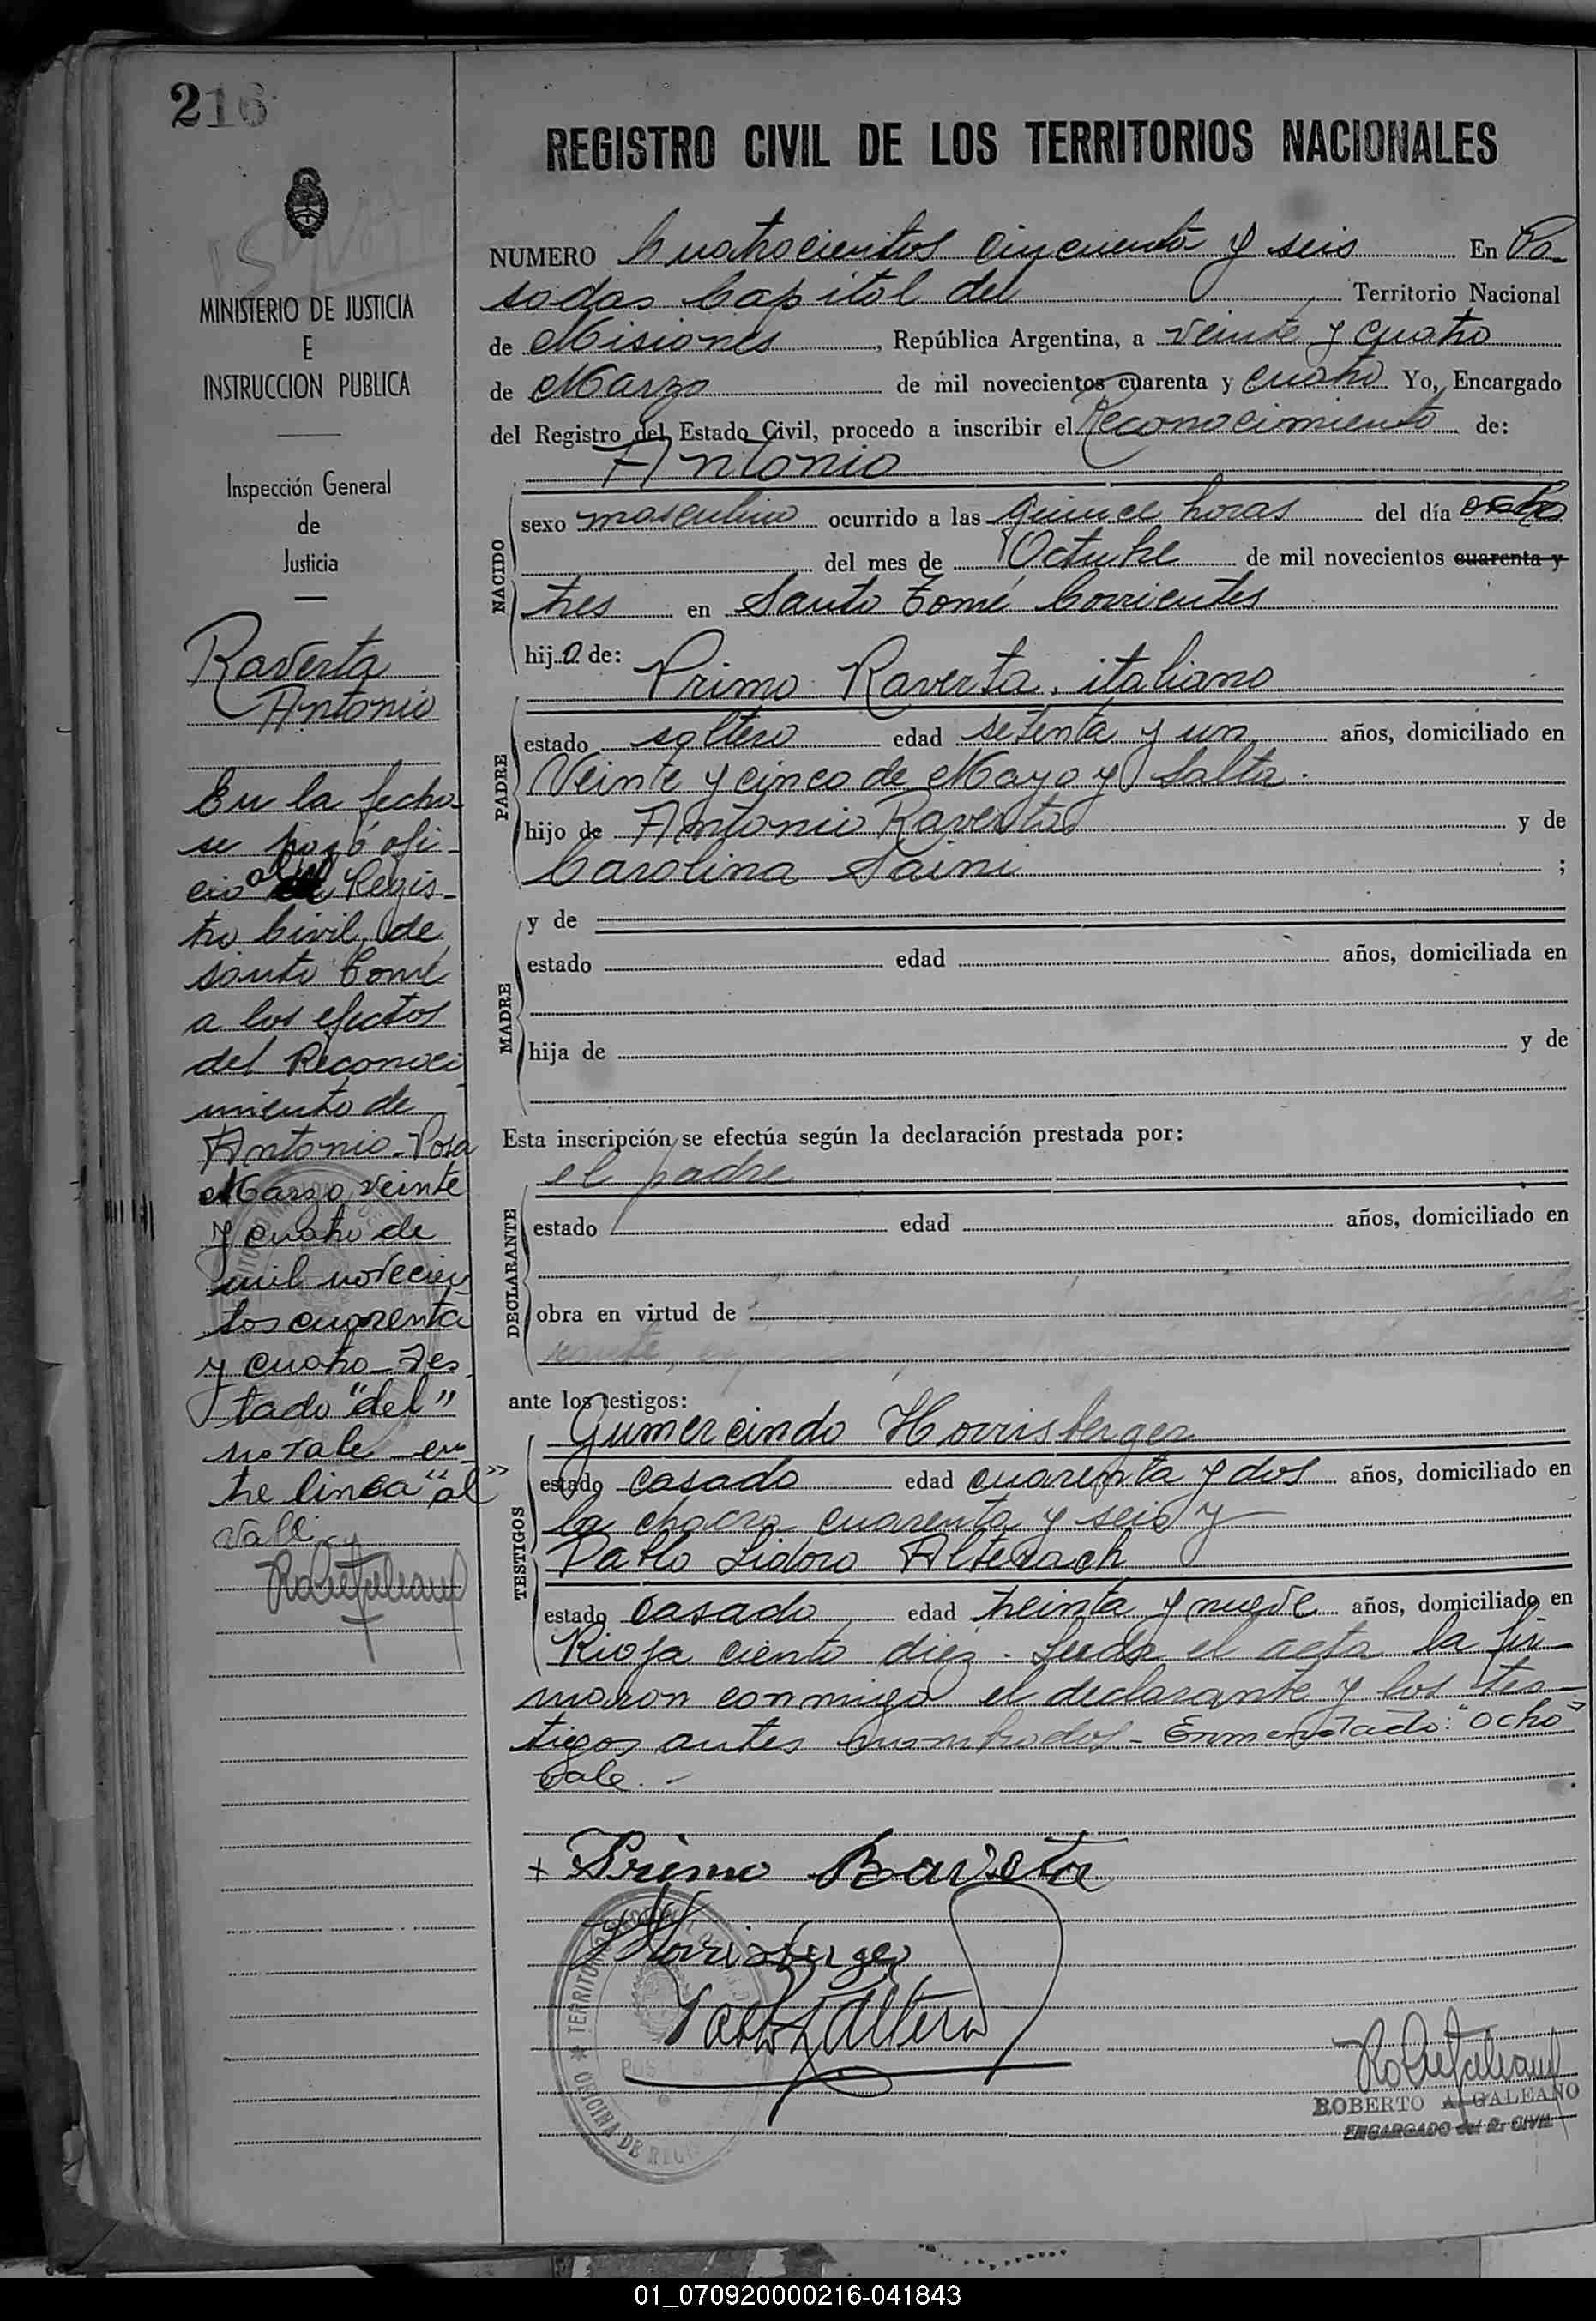 216
MINISTERIO DE JUSTICIA
E
INSTRUCCION PUBLICA
Inspección General
de
Justicia
Raverta
Antonio
En la fecha
se pasó ofi-
cio al Regis-
tro Civil de
Santo Tomé
a los efectos
del Reconoci
miento de
Antonio-Posa
Marzo veinte
y cuatro de
mil novecien
tos cuarenta
y cuatro-Tes
tado "del"
no vale-en
tre linea "al"
Vale.
REGISTRO CIVIL DE LOS TERRITORIOS NACIONALES
NUMERO Cuatrocientos cincuenta y seis En Po-
sadas Capital del Territorio Nacional
de Misiones, República Argentina, a veinte y cuatro
de Marzo de mil novecientos cuarenta y cuatro Yo, Encargado
del Registro del Estado Civil, procedo a inscribir el Reconocimiento de:
Antonio
NACIDO
sexo masculino ocurrido a las quince horas del día ocho
del mes de Octubre de mil novecientos cuarenta y
tres en Santo Tomé Corrientes
hijo de:
Primo Raverta, italiano
PADRE
estado soltero edad setenta y un años, domiciliado en
Veinte y cinco de Mayo y Salta.
hijo de Antonio Raverta y de
Carolina Saini ;
MADRE
y de
estado edad años, domiciliada en
hija de y de
Esta inscripción se efectúa según la declaración prestada por:
el padre
DECLARANTE
estado edad años, domiciliado en
obra en virtud de
ante los testigos:
Gumercindo Horrisberger
TESTIGOS
estado casado edad cuarenta y dos años, domiciliado en
la chacra cuarenta y seis y
Pablo Lidoro Alterach
estado casado edad treinta y nueve años, domiciliado en
Rioja ciento diez. Leida el acta la fir-
maron conmigo el declarante y los tes-
tigos antes nombrados - Enmendado: "ocho"
vale.-
+ Primo Raverta
Horrisberger
Pablo L Altera
TERRITORIO
OFICINA DE REG
ROBERTO A. GALEANO
ENCARGADO del R. CIVIL
01_070920000216-041843